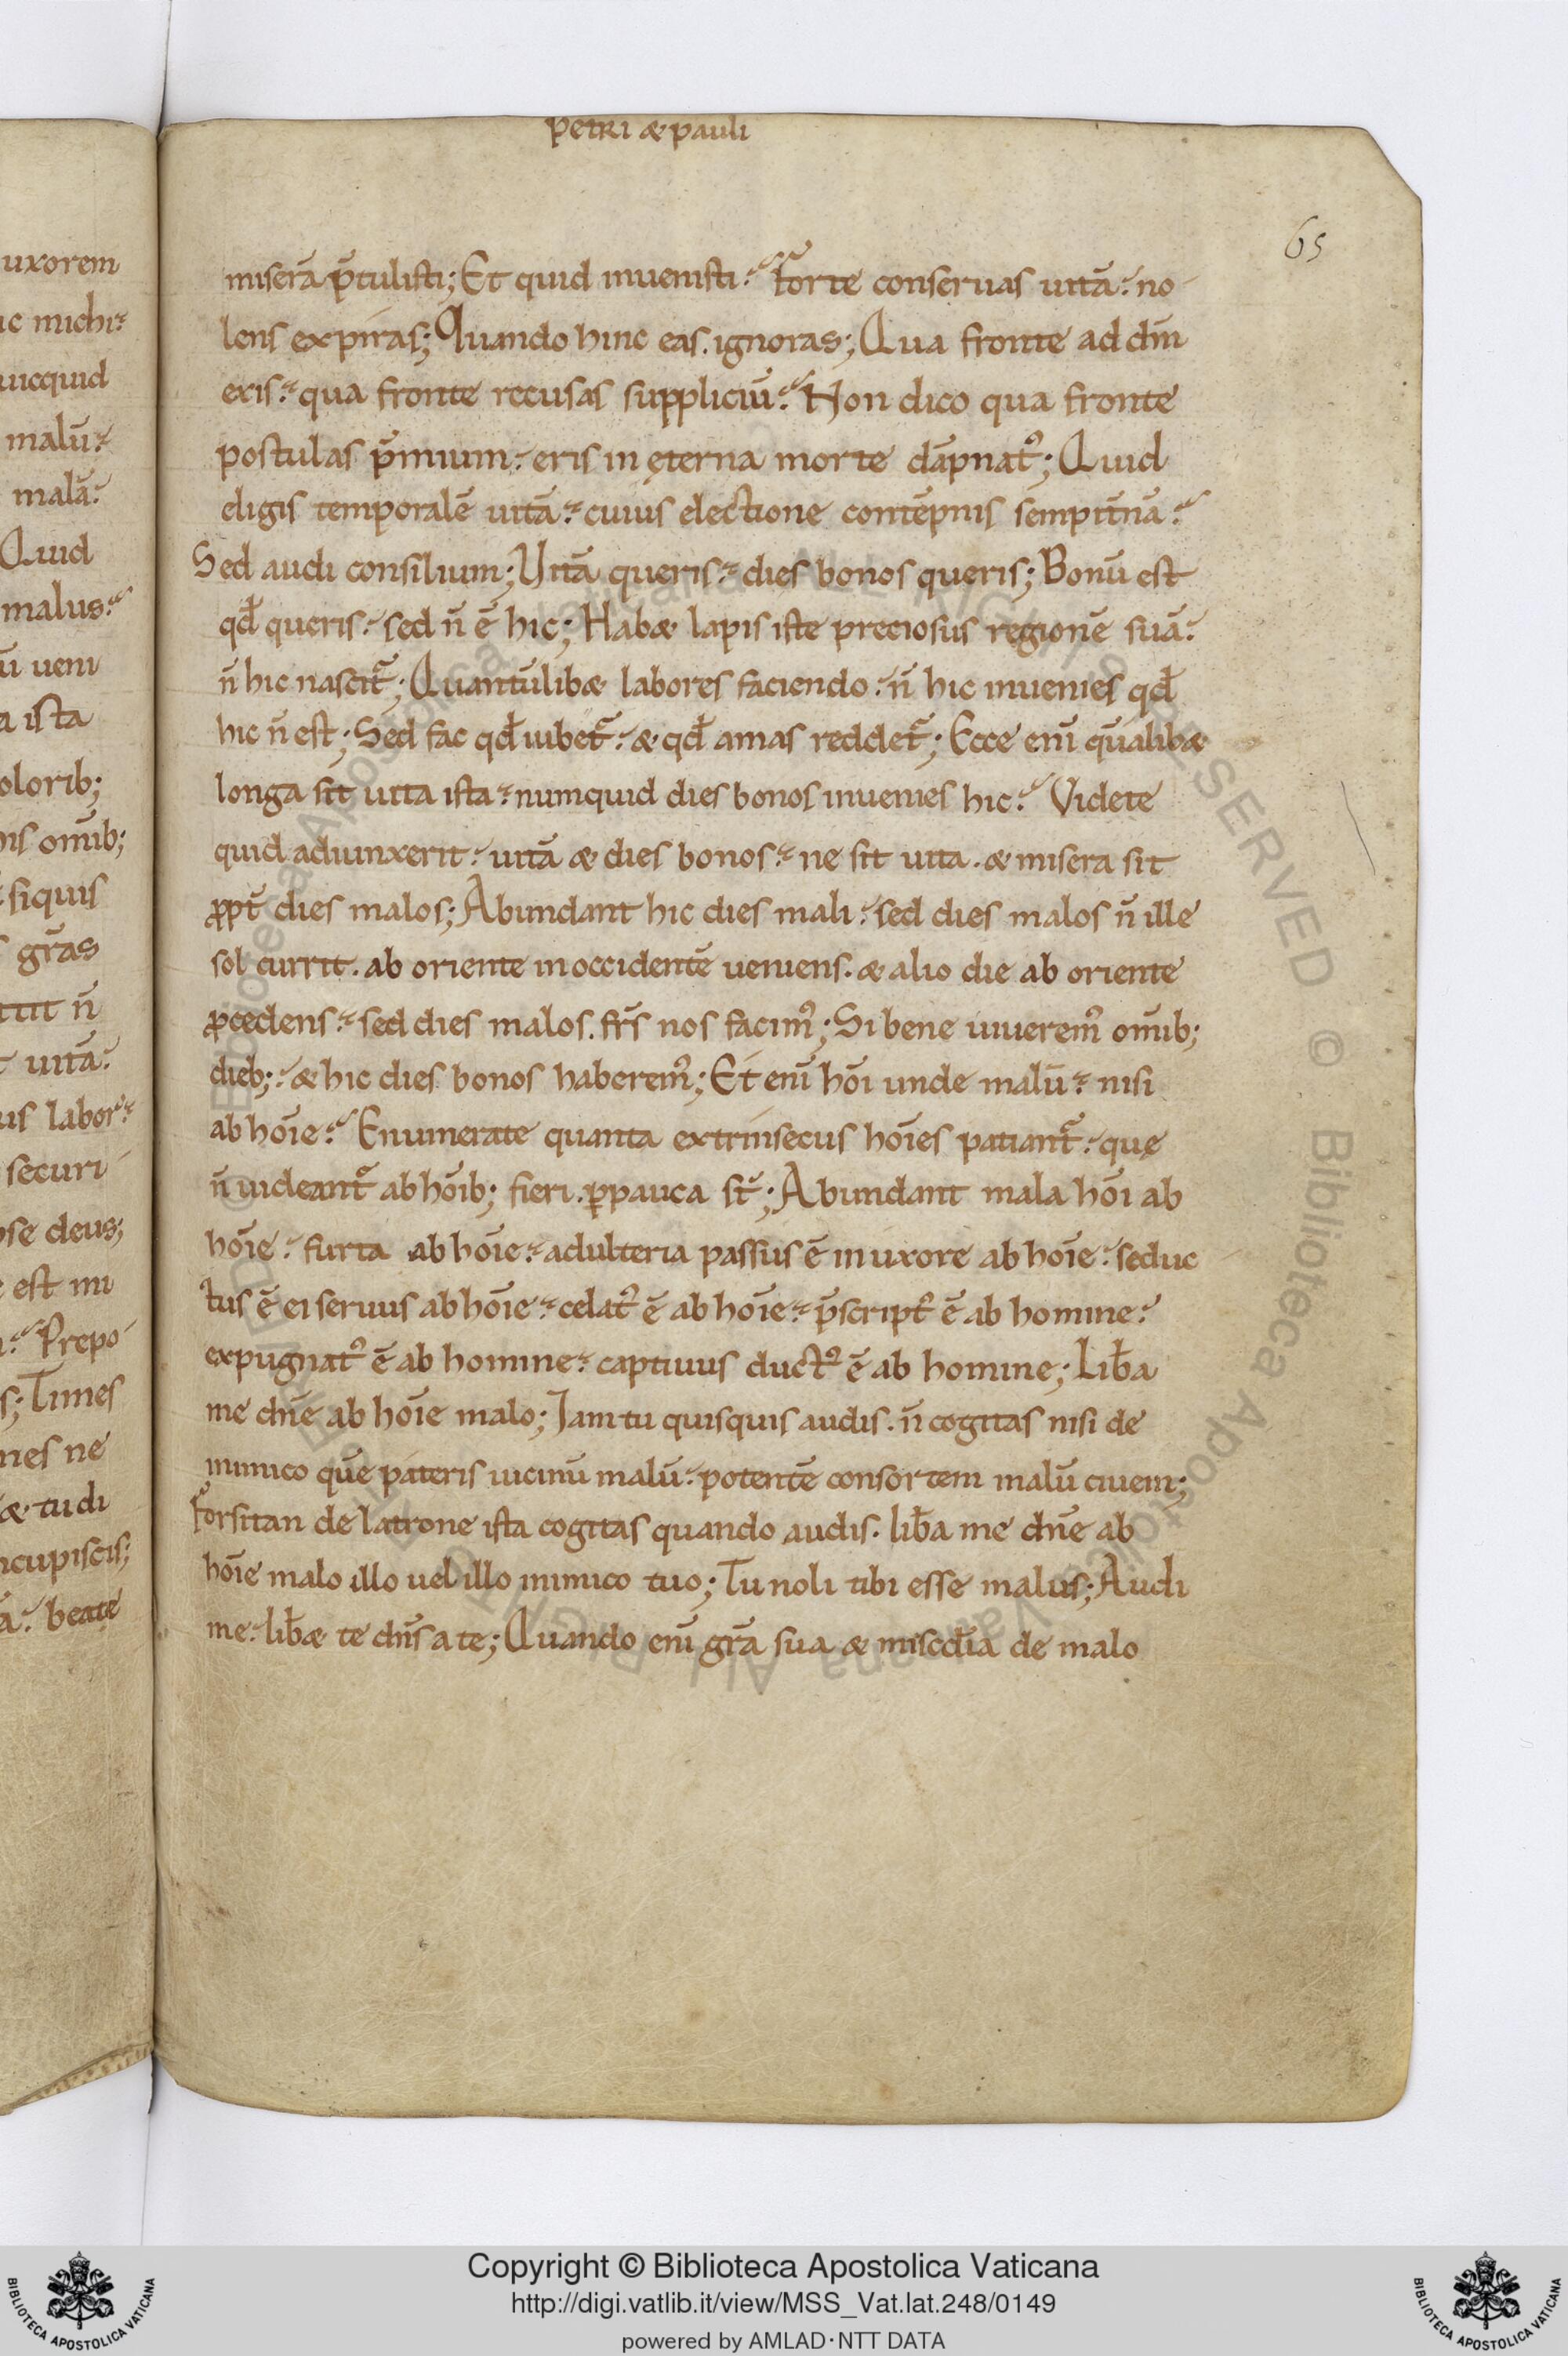 petri & pauli
65
miserā p̄tulisti; Et quid inuenisti? Forte conseruas uitā? no-
lens expiras; Quando hinc eas. ignoras; Qua fronte ad dm̄
exis? qua fronte recusas suppliciū? Non dico qua fronte
postulas p̄mium? eris in ęterna morte dāpnat᾽; Quid
eligis temporalē uitā? cuius electione contēpnis sempit̄nā?
Sed audi consilium; Vitā queris? dies bonos queris; Bonū est
qd̄ queris? sed n̄ ē hic; Hab& lapis iste preciosus regionē suā?
n̄ hic nascit̄; Quantūlib& labores faciendo? n̄ hic inuenies qd̄
hic n̄ est; Sed fac qd̄ iubet̄? & qd̄ amas reddet̄; Ecce enī quālib&
longa sit uita ista? numquid dies bonos inuenies hic? Videte
quid adiunxerit? uitā & dies bonos? ne sit uita. & misera sit
ꝓpt̄ dies malos; Abundant hic dies mali? sed dies malos n̄ ille
sol currit. ab oriente in occidentē ueniens. & alio die ab oriente
ꝓcedens? sed dies malos. fr̄s nos facim᾽; Si bene uiuerem᾽ omīb;
dieb;? & hic dies bonos haberem᾽; Et enī hōi unde malū? nisi
ab hōie? Enumerate quanta extrinsecus hōies patiant̄? quę
n̄ uideant̄ ab hōib; fieri. ꝑpauca st̄; Abundant mala hōi ab
hōie? furta ab hōie? adulteria passus ē in uxore ab hōie? seduc
tus ē ei seruus ab hōie? celat᾽ ē ab hōie? p̄script᾽ ē ab homine?
expugnat᾽ ē ab homine? captiuus duct᾽ ē ab homine; Lib̄a
me dn̄e ab hōie malo; Iam tu quisquis audis. n̄ cogitas nisi de
inimico quē pateris uicinū malū? potentē consortem malū ciuem;
Forsitan de latrone ista cogitas quando audis. lib̄a me dn̄e ab
hōie malo illo uel illo inimico tuo; Tu noli tibi esse malus; Audi
me? lib̄& te dn̄s a te; Quando enī gr̄a sua & miscd̄ia de malo
uxorem
ic michi?
uicquid
malū?
malā?
Quid
malus?
ū ueni
a ista
olorib;
is omīb;
siquis
gr̄as
tit n̄
uitā?
us labor?
securi
se deus;
est mi
Prepo-
s; Times
nes ne
& tu di
ncupiscis;
ā? beatę
Copyright © Biblioteca Apostolica Vaticana
http://digi.vatlib.it/view/MSS_Vat.lat.248/0149
powered by AMLAD·NTT DATA
BIBLIOTECA APOSTOLICA VATICANA
BIBLIOTECA APOSTOLICA VATICANA